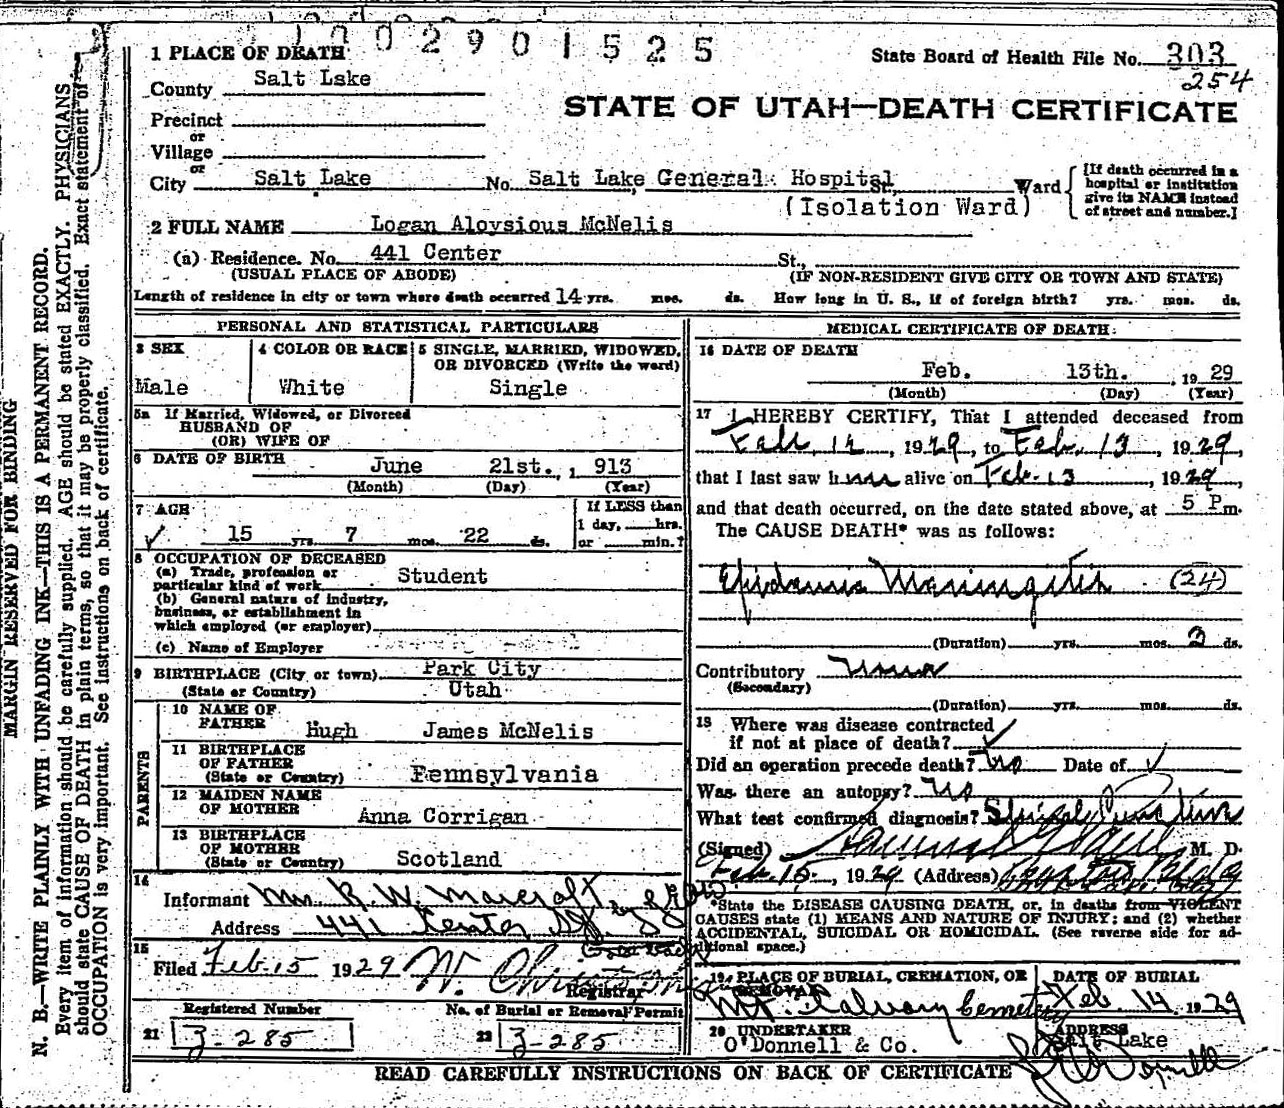 1002901525
1 PLACE OF DEATH
State Board of Health File No. 303
254
County Salt Lake
STATE OF UTAH—DEATH CERTIFICATE
Precinct
or
Village
or
City Salt Lake No. Salt Lake General Hospital St., Ward
(Isolation Ward)
[If death occurred in a
hospital or institution
give its NAME instead
of street and number.]
2 FULL NAME Logan Aloysious McNelis
(a) Residence. No. 441 Center St.,
(USUAL PLACE OF ABODE) (IF NON-RESIDENT GIVE CITY OR TOWN AND STATE)
Length of residence in city or town where death occurred 14 yrs. mos. ds. How long in U. S., if of foreign birth? yrs. mos. ds.
PERSONAL AND STATISTICAL PARTICULARS
3 SEX
Male
4 COLOR OR RACE
White
5 SINGLE, MARRIED, WIDOWED,
OR DIVORCED (Write the word)
Single
5a If Married, Widowed, or Divorced
HUSBAND OF
(OR) WIFE OF
6 DATE OF BIRTH June 21st., 913
(Month) (Day) (Year)
7 AGE
15 yrs. 7 mos. 22 ds.
If LESS than
1 day, hrs.
or min.?
8 OCCUPATION OF DECEASED
(a) Trade, profession or
particular kind of work Student
(b) General nature of industry,
business, or establishment in
which employed (or employer)
(c) Name of Employer
9 BIRTHPLACE (City or town) Park City
(State or Country) Utah
PARENTS
10 NAME OF
FATHER Hugh James McNelis
11 BIRTHPLACE
OF FATHER
(State or Country) Pennsylvania
12 MAIDEN NAME
OF MOTHER Anna Corrigan
13 BIRTHPLACE
OF MOTHER
(State or Country) Scotland
14
Informant Mrs. R. W.
Address 441 Center St.
15
Filed Feb. 15 1929 W.
Registrar
Registered Number
21 3-285
No. of Burial or Removal Permit
22 3-285
MEDICAL CERTIFICATE OF DEATH
16 DATE OF DEATH
Feb. 13th. 1929
(Month) (Day) (Year)
17 I HEREBY CERTIFY, That I attended deceased from
Feb. 12, 1929, to Feb. 13, 1929,
that I last saw him alive on Feb. 13, 1929,
and that death occurred, on the date stated above, at 5 P m.
The CAUSE DEATH* was as follows:
Epidemic Meningitis (24)
(Duration) yrs. mos. 3 ds.
Contributory none
(Secondary)
(Duration) yrs. mos. ds.
18 Where was disease contracted
if not at place of death?
Did an operation precede death? no Date of
Was there an autopsy? no
What test confirmed diagnosis? Spinal Puncture
(Signed) M. D.
Feb. 15, 1929 (Address)
*State the DISEASE CAUSING DEATH, or, in deaths from VIOLENT
CAUSES state (1) MEANS AND NATURE OF INJURY; and (2) whether
ACCIDENTAL, SUICIDAL OR HOMICIDAL. (See reverse side for ad-
ditional space.)
19 PLACE OF BURIAL, CREMATION, OR
REMOVAL
Mt. Calvary Cemetery
DATE OF BURIAL
Feb. 14 1929
20 UNDERTAKER
O'Donnell & Co.
ADDRESS
Salt Lake
READ CAREFULLY INSTRUCTIONS ON BACK OF CERTIFICATE
MARGIN RESERVED FOR BINDING
N. B.—WRITE PLAINLY WITH UNFADING INK—THIS IS A PERMANENT RECORD.
Every item of information should be carefully supplied. AGE should be stated EXACTLY. PHYSICIANS
should state CAUSE OF DEATH in plain terms, so that it may be properly classified. Exact statement of
OCCUPATION is very important. See instructions on back of certificate.